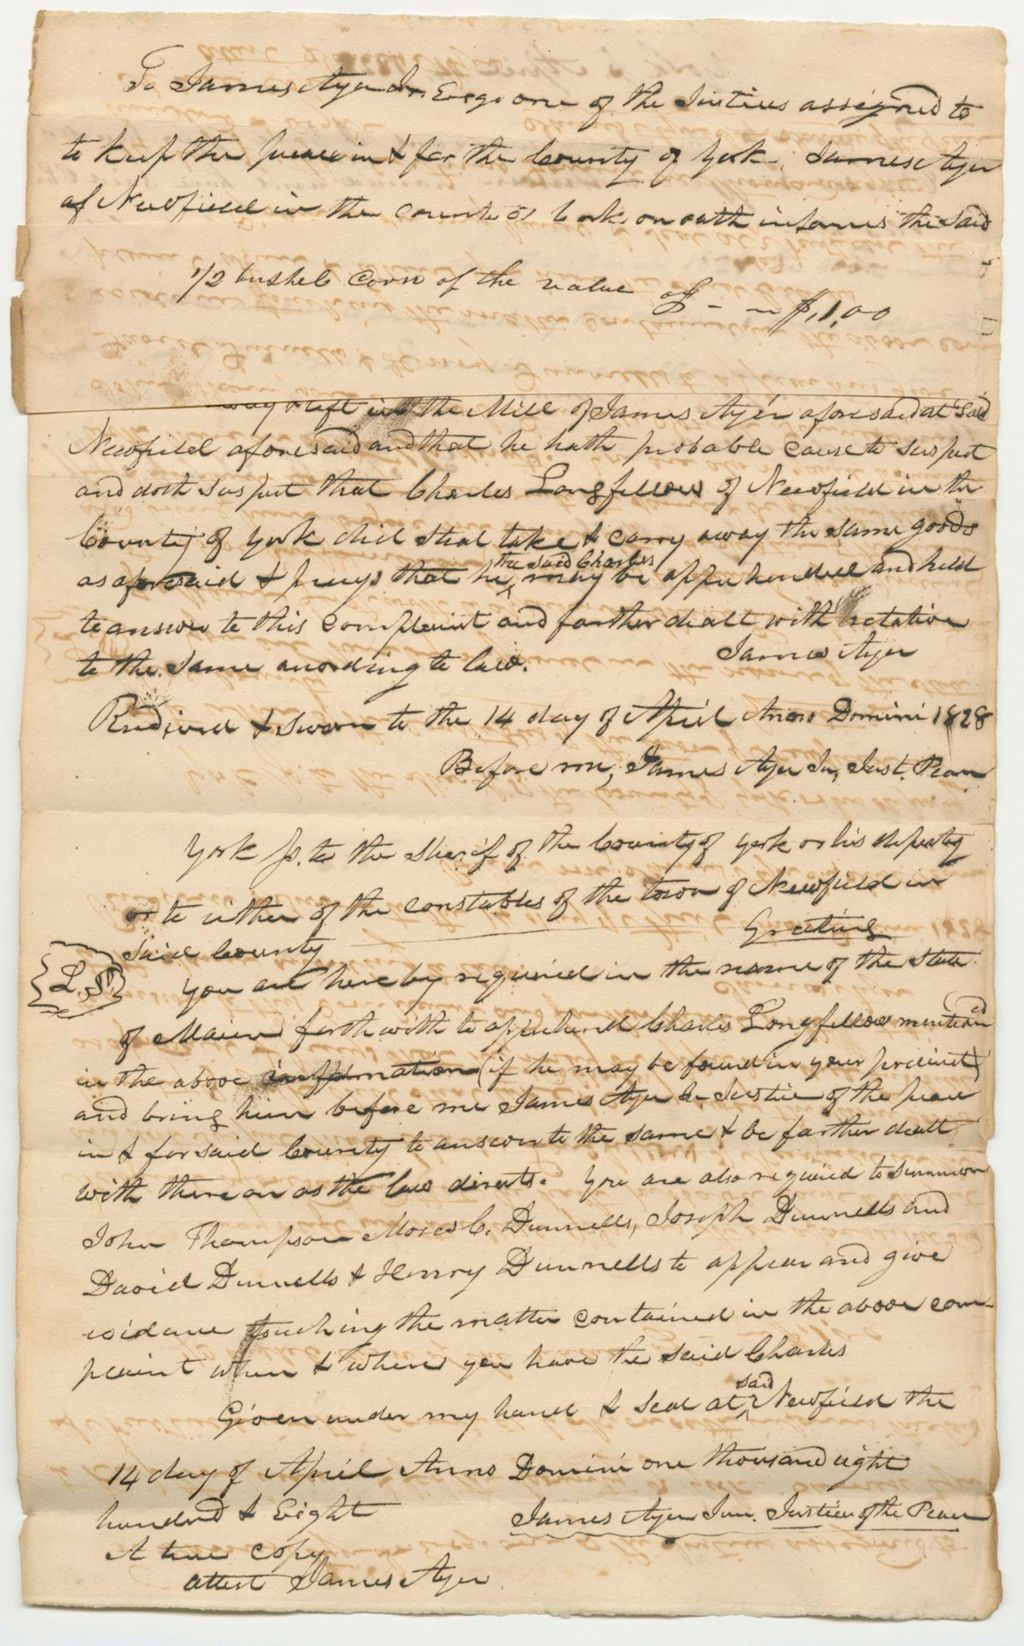 To James Ayer Jr. Esqr one of the Justices assigned to
to keep the peace in & for the County of York. James Ayer
of Newfield in the county of York on oath informs the said
1/2 bushel corn of the value of - - $1,00
way & left in the Mill of James Ayer aforesaid at said
Newfield aforesaid and that he hath probable cause to suspect
and doth suspect that Charles Longfellow of Newfield in the
County of York did steal take & carry away the same goods
as aforesaid & prays that he the said Charles may be apprehended and held
to answer to this complaint and farther dealt with relative
to the same according to law. James Ayer
Received & sworn to the 14 day of April Anno Domini 1828
Before me, James Ayer Jr, Just. Peace
York ss. to the Sherif of the County of York or his deputy
or to either of the constables of the town of Newfield in
said County Greeting
L.S. You are hereby required in the name of the State
of Maine forthwith to apprehend Charles Longfellow mentioned
in the above information (if he may be found in your precinct)
and bring him before me James Ayer Jr Justice of the peace
in & for said County to answer to the same & be farther dealt
with thereon as the law directs. You are also required to summon
John Thompson Moses C. Dunnells, Joseph Dunnells and
David Dunnells & Henry Dunnells to appear and give
evidence touching the matter contained in the above com-
plaint when & where you have the said Charles
Given under my hand & seal at said Newfield the
14 day of April Anno Domini one thousand eight
hundred & Eight James Ayer Jun. Justice of the Peace
A true copy
attest James Ayer